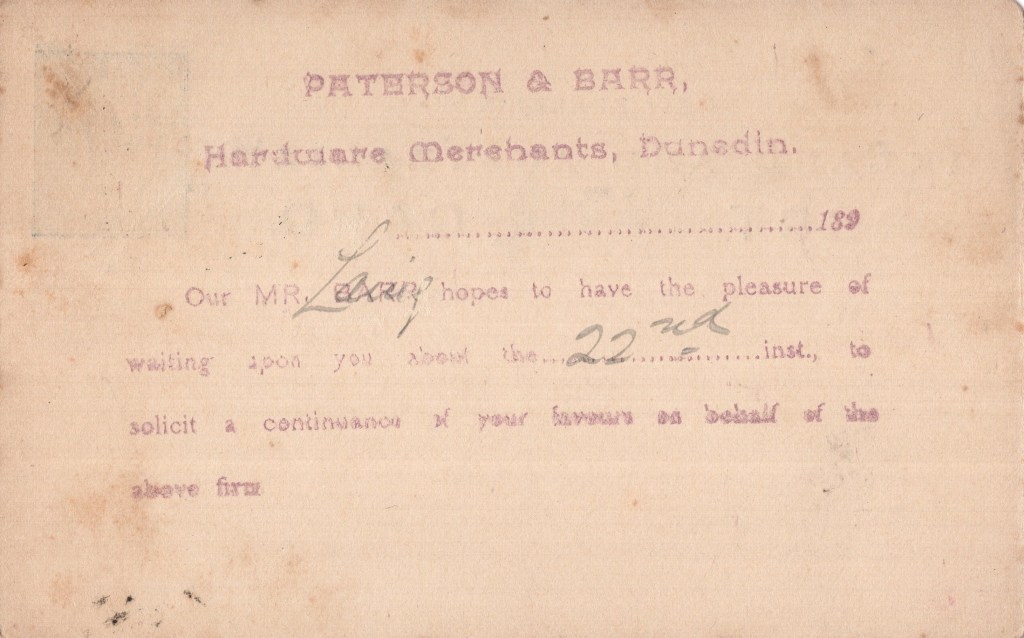 PATERSON & BARR,
Hardware Merchants, Dunedin.
189
Our MR. BARR Laing hopes to have the pleasure of
waiting upon you about the 22nd inst., to
solicit a continuance of your favours on behalf of the
above firm